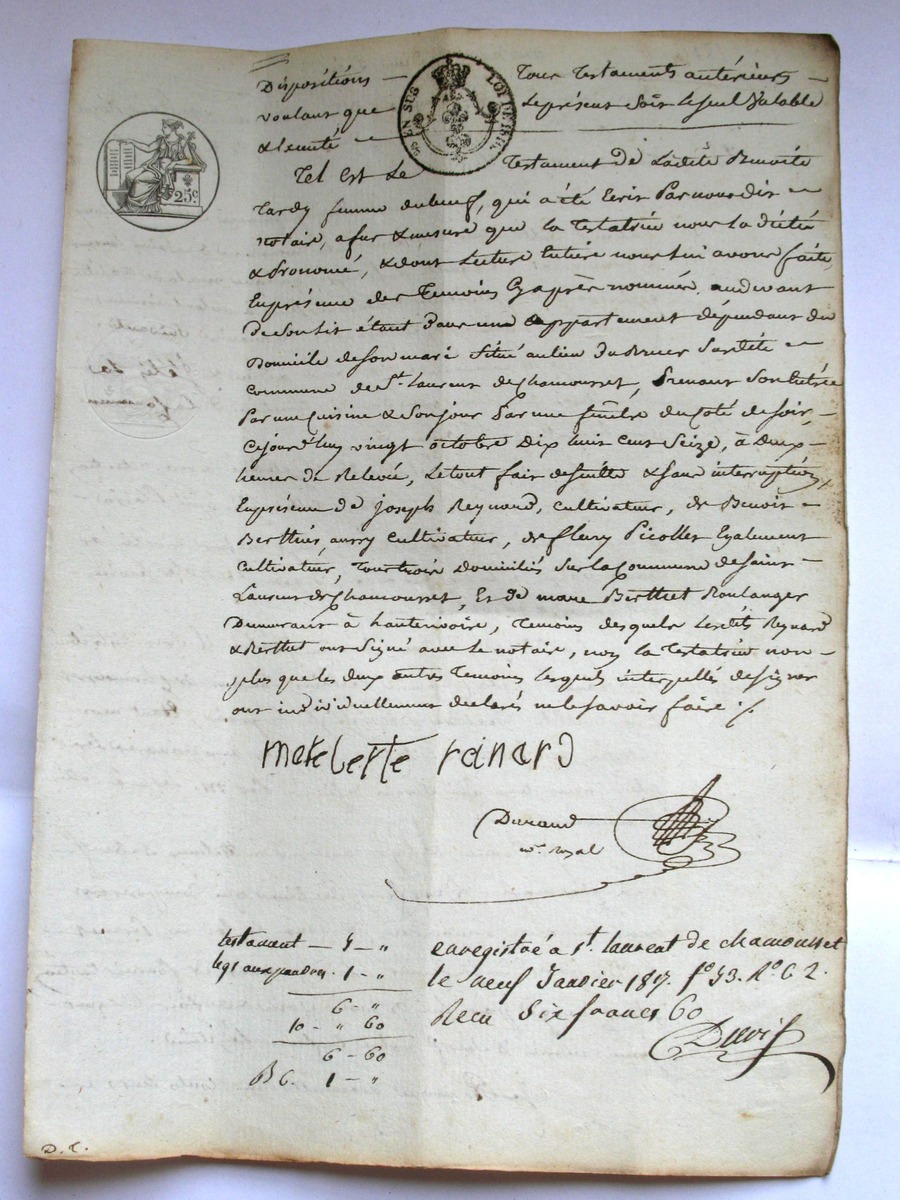 Dispositions Tous Testaments antérieurs
voulant que le présent soit le seul valable
& exécuté
EN SUS LOI DE 1816
25c
Tel est le Testament de ladite Benoite
Tardy femme dubeuf, qui a été écrit par nous dit
notaire, a fur & mesure que la Testatrice nous l'a dicté
& prononcé, & dont lecture entière nous lui avons faite,
En présence des Temoins cy après nommés, au devant
de son lit étant dans une appartement dépendant du
Domicile de son mari situé au lieu du sardite
commune de St. Laurent de Chamousset, prenant son entrée
par une cuisine & son jour par une fenêtre du coté de soir,
cejourd'huy vingt octobre dix huit cent seize, à deux
heures de relevée, le tout fait de suitte & sans interruption
En présence de joseph Reynard, cultivateur, de Benoit
Berthier aussy cultivateur, de fleury Picollet Egalement
cultivateur, tous trois domiciliés sur la commune de Saint
Laurent de Chamousset, Et de marc Berthet Boulanger
Demeurant à hauterivoire, Temoins desquels lesdits Reynard
& Berthet ont signé avec le notaire, non la Testatrice non
plus que les deux autres Temoins lesquels interpellés de signer
ont individuellement declarés ne le savoir faire ./.
mark bertte rainard
Durand
nre. royal
testament — 5 — "
legs aux pauvres. 1 — "
6 - "
10 - " 60
6 - 60
1 - "
enregistré à St. laurent de chamousset
le neuf Janvier 1817. fo. 53. Ro. C 2.
Recu Six francs 60
D. T.